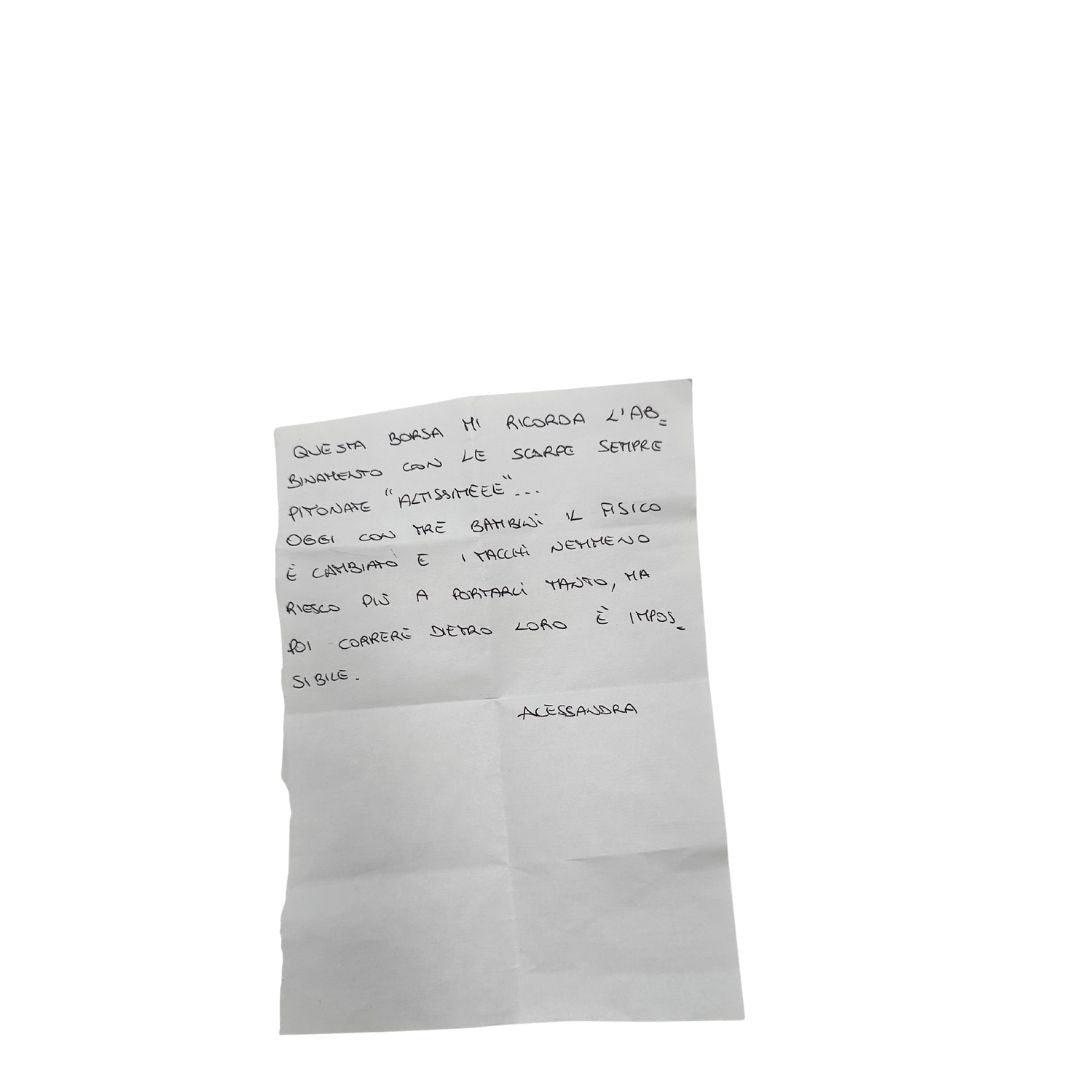 QUESTA BORSA MI RICORDA L'AB=
BINAMENTO CON LE SCARPE SEMPRE
PITONATE "ALTISSIMEEE"...
OGGI CON TRE BAMBINI IL FISICO
È CAMBIATO E I TACCHI NEMMENO
RIESCO PIÙ A PORTARLI TANTO, MA
POI CORRERE DIETRO LORO È IMPOS=
SIBILE.
ALESSANDRA